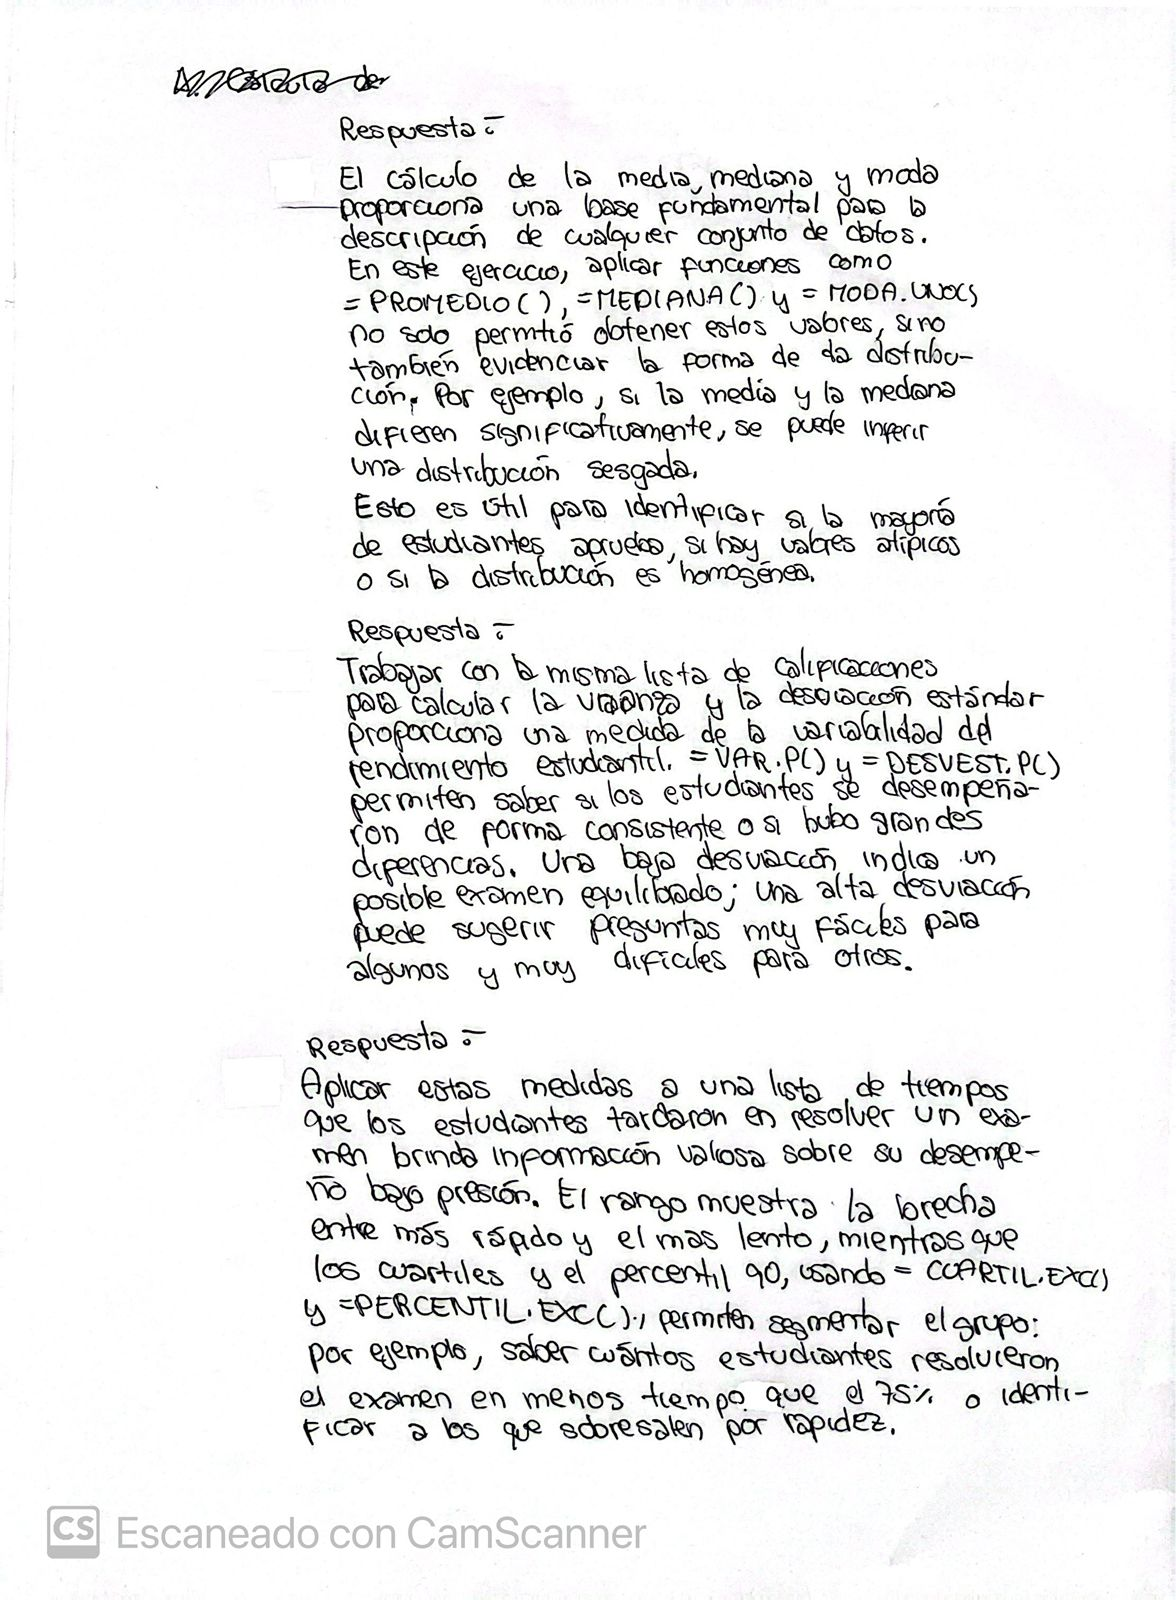 Respuesta:-
El cálculo de la media, mediana y moda
proporciona una base fundamental para la
descripción de cualquier conjunto de datos.
En este ejercicio, aplicar funciones como
=PROMEDIO(), =MEDIANA() y =MODA.UNO()
no solo permitió obtener estos valores, sino
también evidenciar la forma de da distribu-
ción. Por ejemplo, si la media y la mediana
difieren significativamente, se puede inferir
una distribución sesgada.
Esto es útil para identificar si la mayoría
de estudiantes aprueba, si hay valores atípicos
o si la distribución es homogénea.
Respuesta:-
Trabajar con la misma lista de calificaciones
para calcular la y la desviación estándar
proporciona una medida de la variabilidad del
rendimiento estudiantil. =VAR.P() y =DESVEST.P()
permiten saber si los estudiantes se desempeña-
ron de forma consistente o si hubo grandes
diferencias. Una baja desviación indica un
posible examen equilibrado; una alta desviación
puede sugerir preguntas muy fáciles para
algunos y muy difíciles para otros.
Respuesta:-
Aplicar estas medidas a una lista de tiempos
que los estudiantes tardaron en resolver un exa-
men brinda información valiosa sobre su desempe-
ño bajo presión. El rango muestra la brecha
entre más rápido y el mas lento, mientras que
los cuartiles y el percentil 90, usando =CUARTIL.EXC()
y =PERCENTIL.EXC()., permiten segmentar el grupo:
por ejemplo, saber cuántos estudiantes resolvieron
el examen en menos tiempo que el 75% o identi-
ficar a los que sobresalen por rapidez.
CS Escaneado con CamScanner